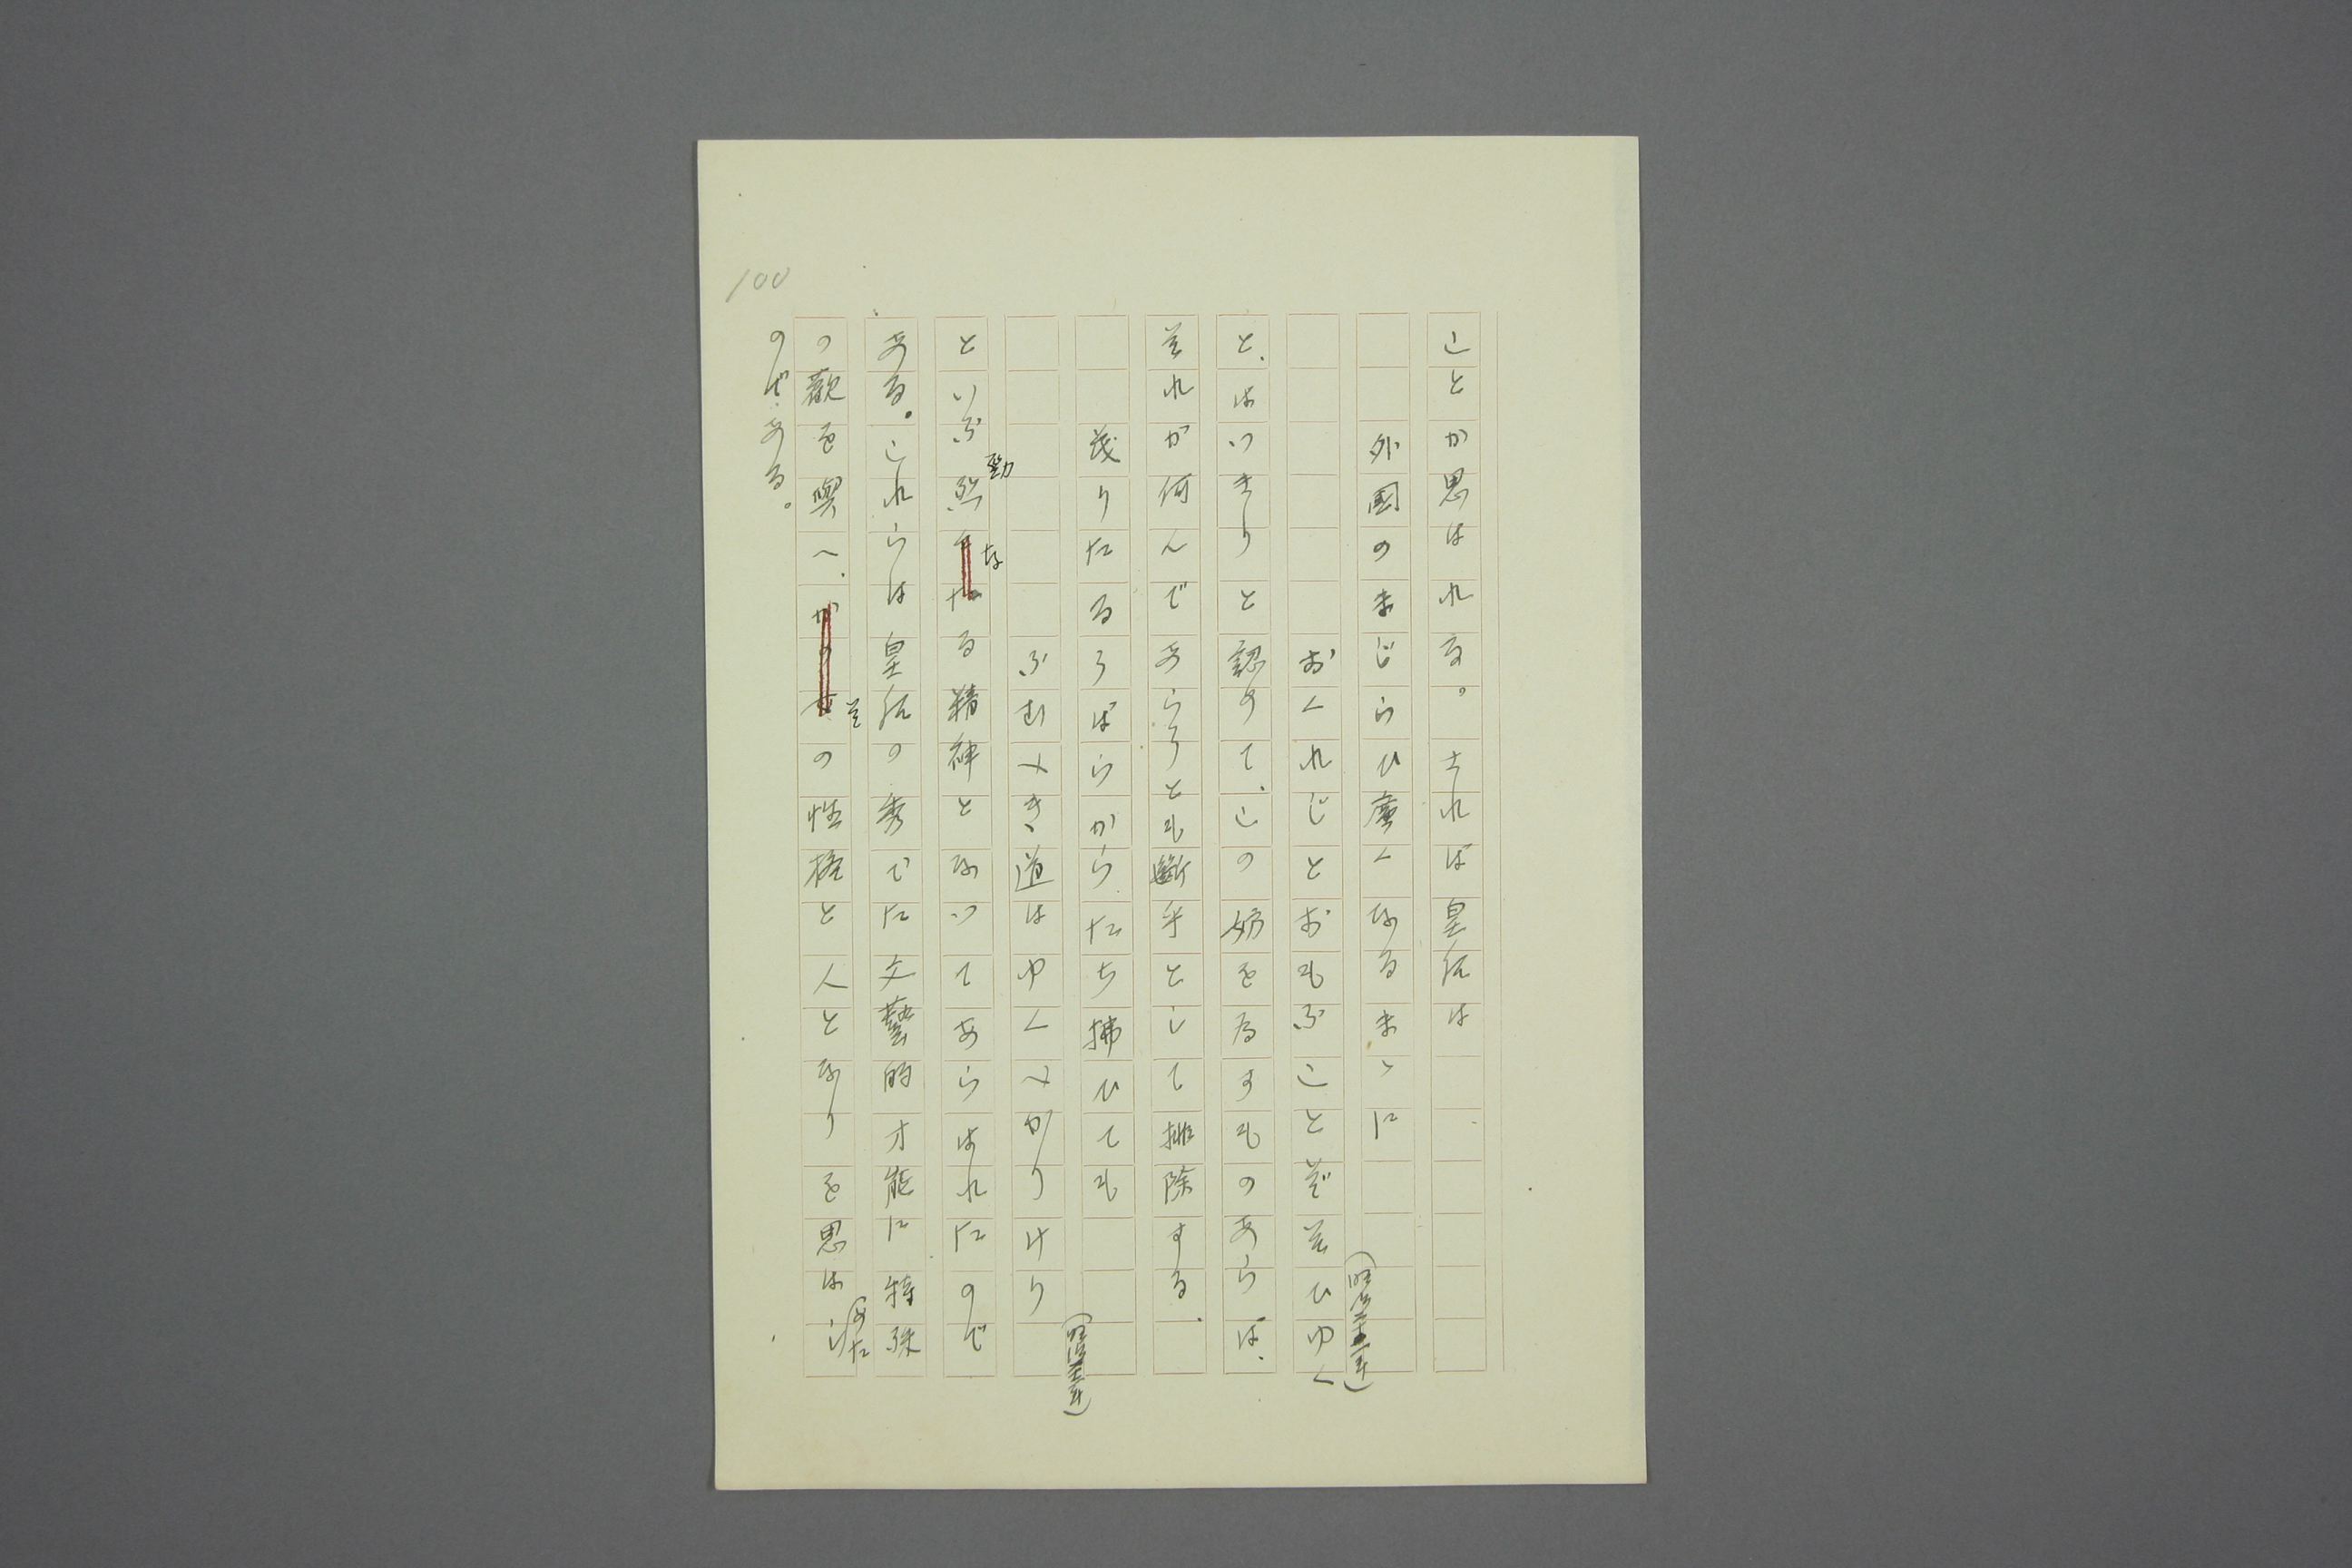 100
ことか思はれる。されば皇后は
外国のまじらひ廣くなるまゝに
おくれじとおもふことぞそひゆく
(明治二十一年)
と、はつきりと認めて、この妨を為すものあらば、
それが何んであらうとも斷乎として排除する。
茂りたるうばらからたち拂ひても
ふむべき道はゆくべかりけり
といふ烈
勁
な
る精神となつてあらはれたので
ある。これらは皇后の秀でた文藝的才能に特殊
の歡を與へ、
そ
の性格と人となりを思はし
めた
のである。